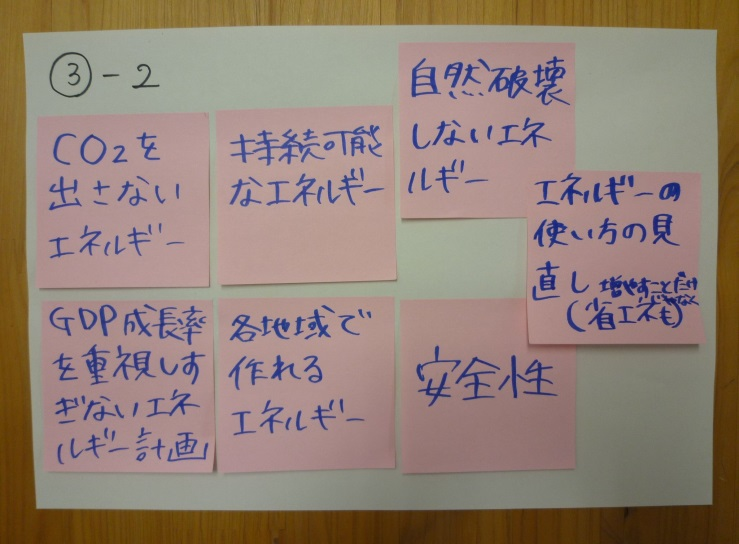 ③-2
CO2を
出さない
エネルギー
持続可能
なエネルギー
自然破壊
しないエネ
ルギー
エネルギーの
使い方の見
直し 増やすことだけ
じゃなく
(省エネも)
GDP成長率
を重視しす
ぎないエネ
ルギー計画
各地域で
作れる
エネルギー
安全性